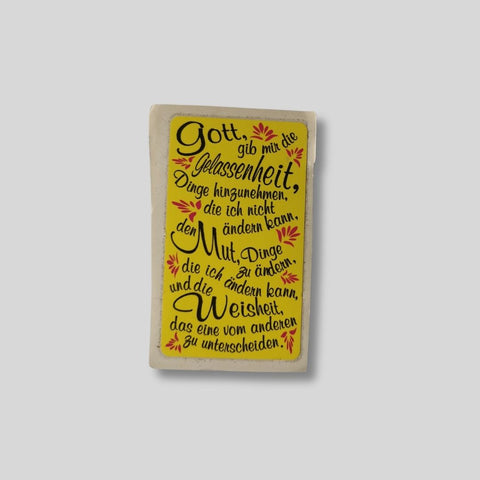 Gott,
gib mir die
Gelassenheit,
Dinge hinzunehmen,
die ich nicht
ändern kann,
den
Mut, Dinge
zu ändern,
die ich ändern kann,
und die
Weisheit,
das eine vom anderen
zu unterscheiden.